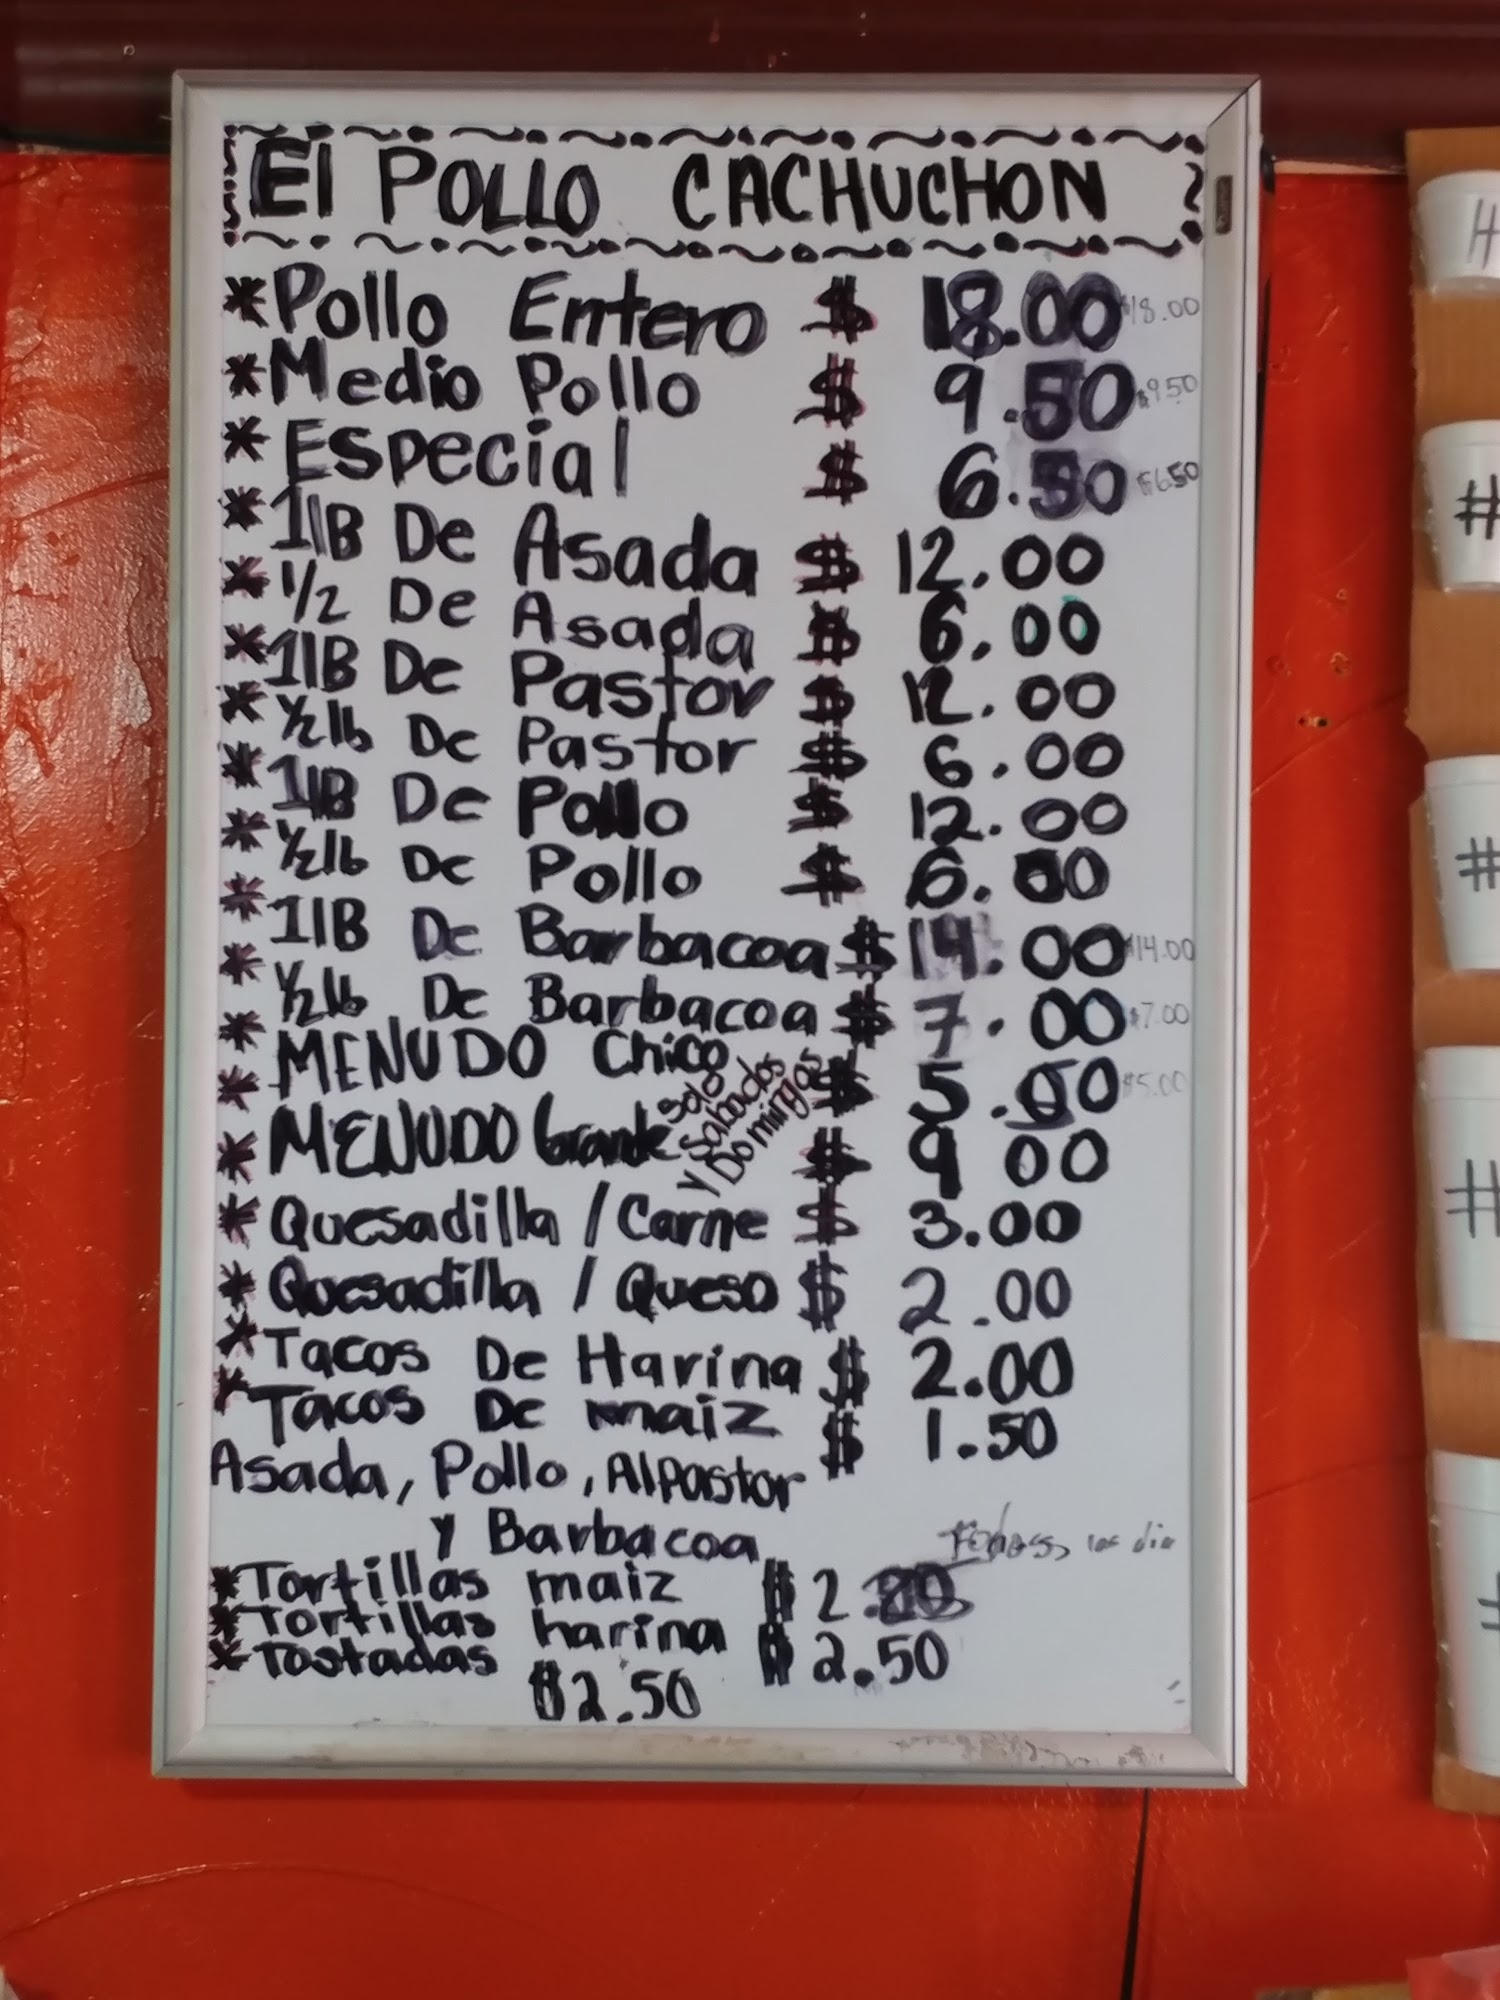 El POLLO CACHUCHON
* Pollo Entero $ 18.00 $18.00
* Medio Pollo $ 9.50 $9.50
* Especial $ 6.50 $6.50
* 1lB De Asada $ 12.00
* 1/2 De Asada $ 6.00
* 1lB De Pastor $ 12.00
* 1/2 lb De Pastor $ 6.00
* 1lB De Pollo $ 12.00
* 1/2 lb De Pollo $ 6.00
* 1lB De Barbacoa $ 14.00 $14.00
* 1/2 lb De Barbacoa $ 7.00 $7.00
* MENUDO Chico $ 5.00 $5.00
* MENUDO Grande $ 9 00
Solo
Sabados
y Domingos
* Quesadilla / Carne $ 3.00
* Quesadilla / Queso $ 2.00
* Tacos De Harina $ 2.00
* Tacos De maiz $ 1.50
Asada, Pollo, Al Pastor
y Barbacoa
los dia
* Tortillas maiz $ 2.00
* Tortillas harina $ 2.50
* Tostadas
$2.50
H
#
#
#
#